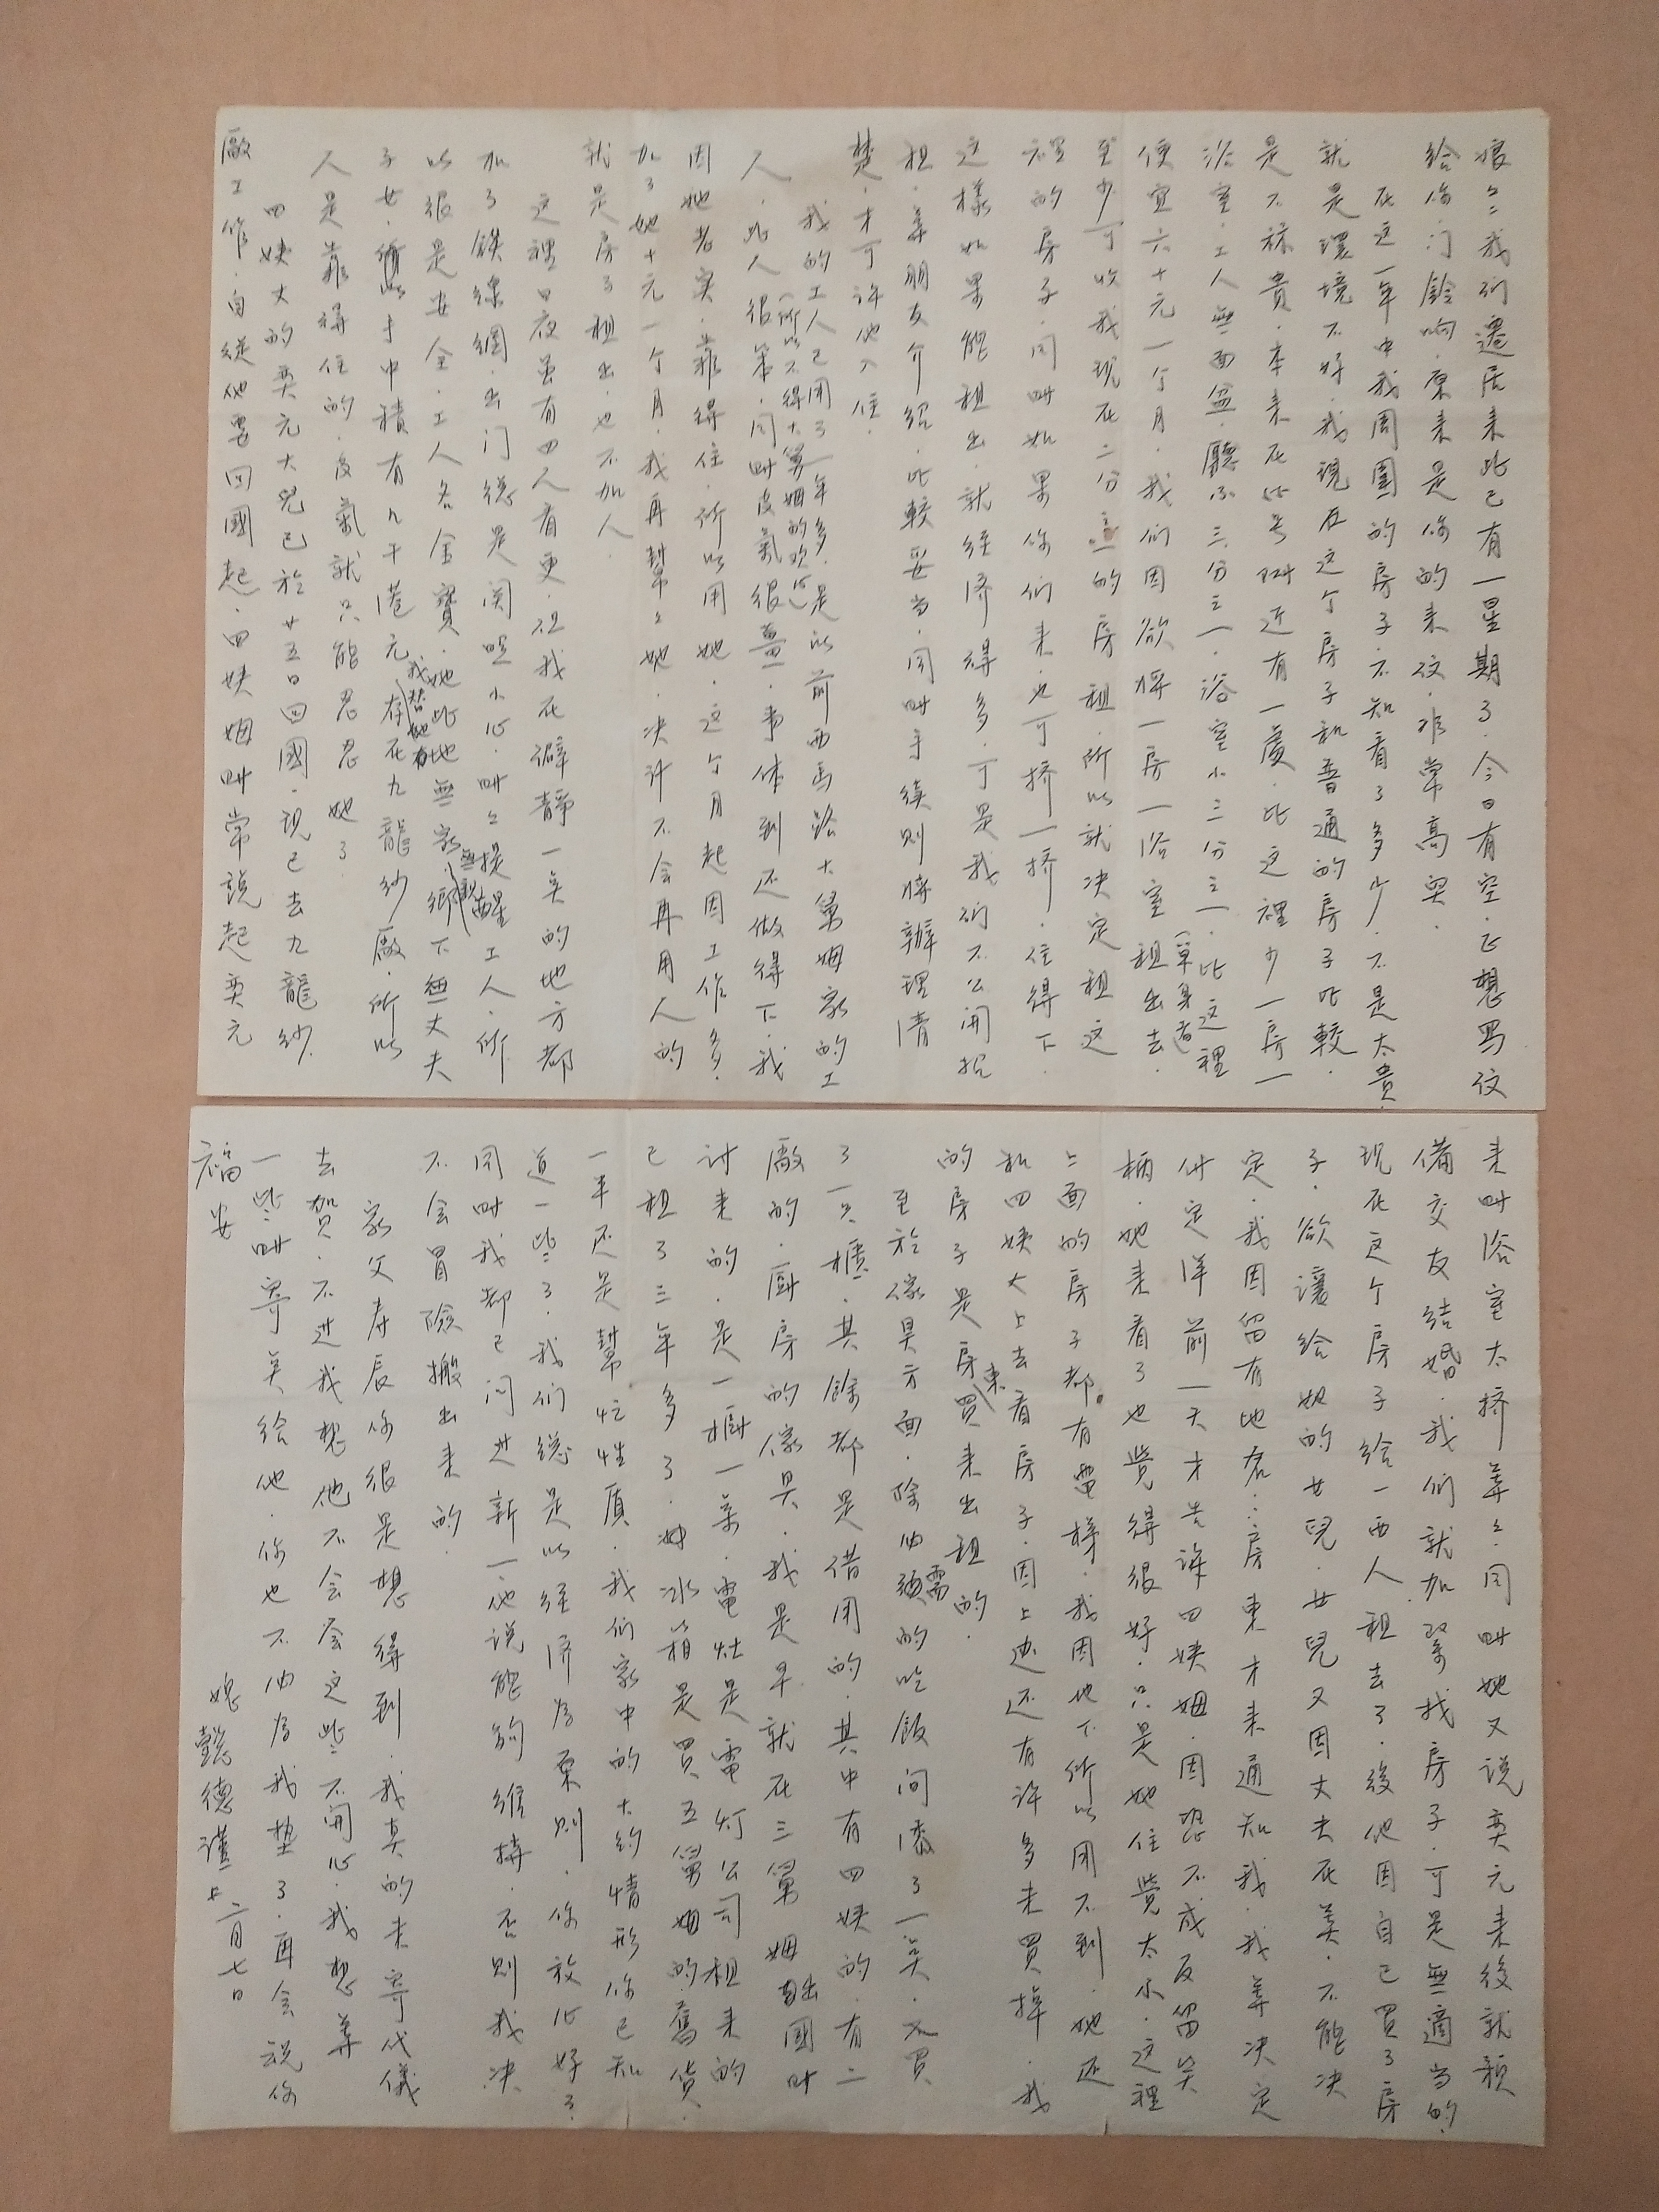 娘々：我们遷居来此已有一星期了．今日有空．正想写信
给你．门鈴响．原来是你的来信．非常高興．
在这一年中我周圍的房子．不知看了多少．不是太貴．
就是環境不好．我現在这个房子和普通的房子比較．
是不祘貴．本来在此号附近有一處．比这裡少一房一
浴室．工人無面盆．廳小三分之一．浴室小三分之一．比这裡
便宜六十元一个月．我们因欲将一房一浴室租出去．（單身者）
至少可收我現在二分之一的房租．所以就决定租这
裡的房子．同時如果你们来．也可挤一挤．住得下．
这樣如果能租出．就经济得多．可是我们不公開招
租．等朋友介紹．比較妥当．同時手续則将辦理清
楚．才可許他入住．
我的工人已用了一年多．是以前西馬路大舅姆家的工
人．（所以不得大舅姆的欢心）此人很笨．同時皮氣很薑．事体到还做得下．我
因她老実．靠得住．所以用她．这个月起因工作多．
加了她十元一个月．我再幫々她．决计不会再用人的
就是房了租出．也不加人．
这裡日夜虽有四人看更．但我在僻静一矣的地方都
加了鉄線網．出门總是関照小心．時々提醒工人．所
以很是安全．工人名金寶．她此地無家．無親．鄉下無丈夫
子女．手中積有九千港元．我替她存在九龍紗廠．所以
人是靠得住的．皮氣就只能忍忍她了．
四姨丈的奕元大兒已於廿五日回國．現已去九龍紗
廠工作．自從他要回國起．四姨姆時常説起奕元
来時浴室太挤等々．同時她又说奕元来後就預
備交友結婚．我们就加紧找房子．可是無適当的．
現在这个房子给一西人租去了．後他因自己買了房
子．欲讓给她的女兒．女兒又因丈夫在美．不能决
定．我因留有地名．房東才来通知我．我等决定
付定洋前一天才告诉四姨姆．因恐不成反留笑
柄．她来看了也覺得很好．只是她住覺太小．这裡
上面的房子都有電梯．我因地下所以用不到．她还
和四姨大上去看房子．因上边还有许多未買掉．我
的房子是房東買来出租的．
至於傢具方面．除必須需的吃飯间添了一矣．又買
了一只櫃．其餘都是借用的．其中有四姨的．有二
廠的．厨房的傢具．我是早就在三舅姆出國時
討来的．是一櫥一桌．電灶是電灯公司租来的
已租了三年多了．冰箱是買五舅姆的舊货．
一半还是幫忙性质．我们家中的大約情形你已知
道一些了．我们總是以经济為原則．你放心好了．
同時我都已问过新一．他说能夠維持．否則我决
不会冒險搬出来的．
家父寿辰你很是想得到．我真的未寄代儀
去賀．不过我想他不会会这些不開心．我想等
一些時寄矣给他．你也不必為我墊了．再会祝你
福安
媳懿德谨上 二月七日